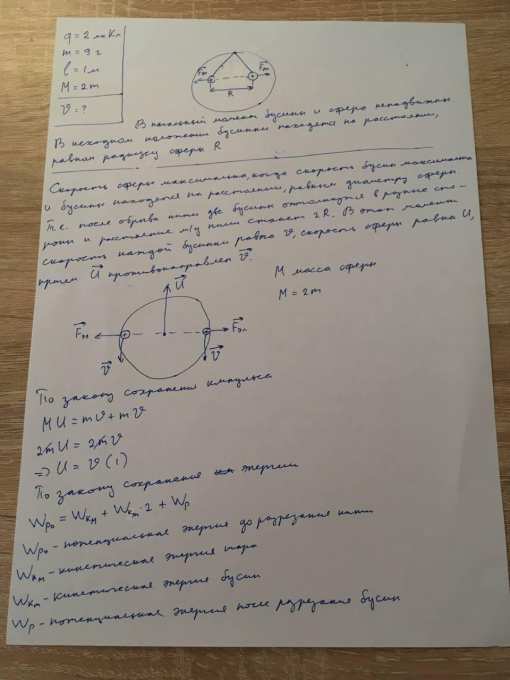 q = 2 мкКл
m = 9 г
l = 1 м
M = 2m
V = ?
Fэл
Fэл
R
В начальный момент бусины и сфера неподвижны
В исходном положении бусинки находятся на расстоянии,
равном радиусу сферы R
Скорость сферы максимальна, когда скорость бусин максимальна
и бусины находятся на расстоянии, равным диаметру сферы
Т.е. после обрыва нити две бусины отталкиваются в разные сто-
роны и расстояние м/у ними станет 2R. В этот момент
скорость каждой бусинки равна v, скорость сферы равна U,
причем U противонаправлен v.
M масса сферы
M = 2m
U
Fэл
Fэл
v
v
По закону сохранения импульса
MU = mv + mv
2mU = 2mv
=> U = v (1)
По закону сохранения энергии
Wp₀ = Wкм + Wкm · 2 + Wp
Wp₀ - потенциальная энергия до разрезания нити
Wкм - кинетическая энергия шара
Wкm - кинетическая энергия бусин
Wp - потенциальная энергия после разрезания бусин